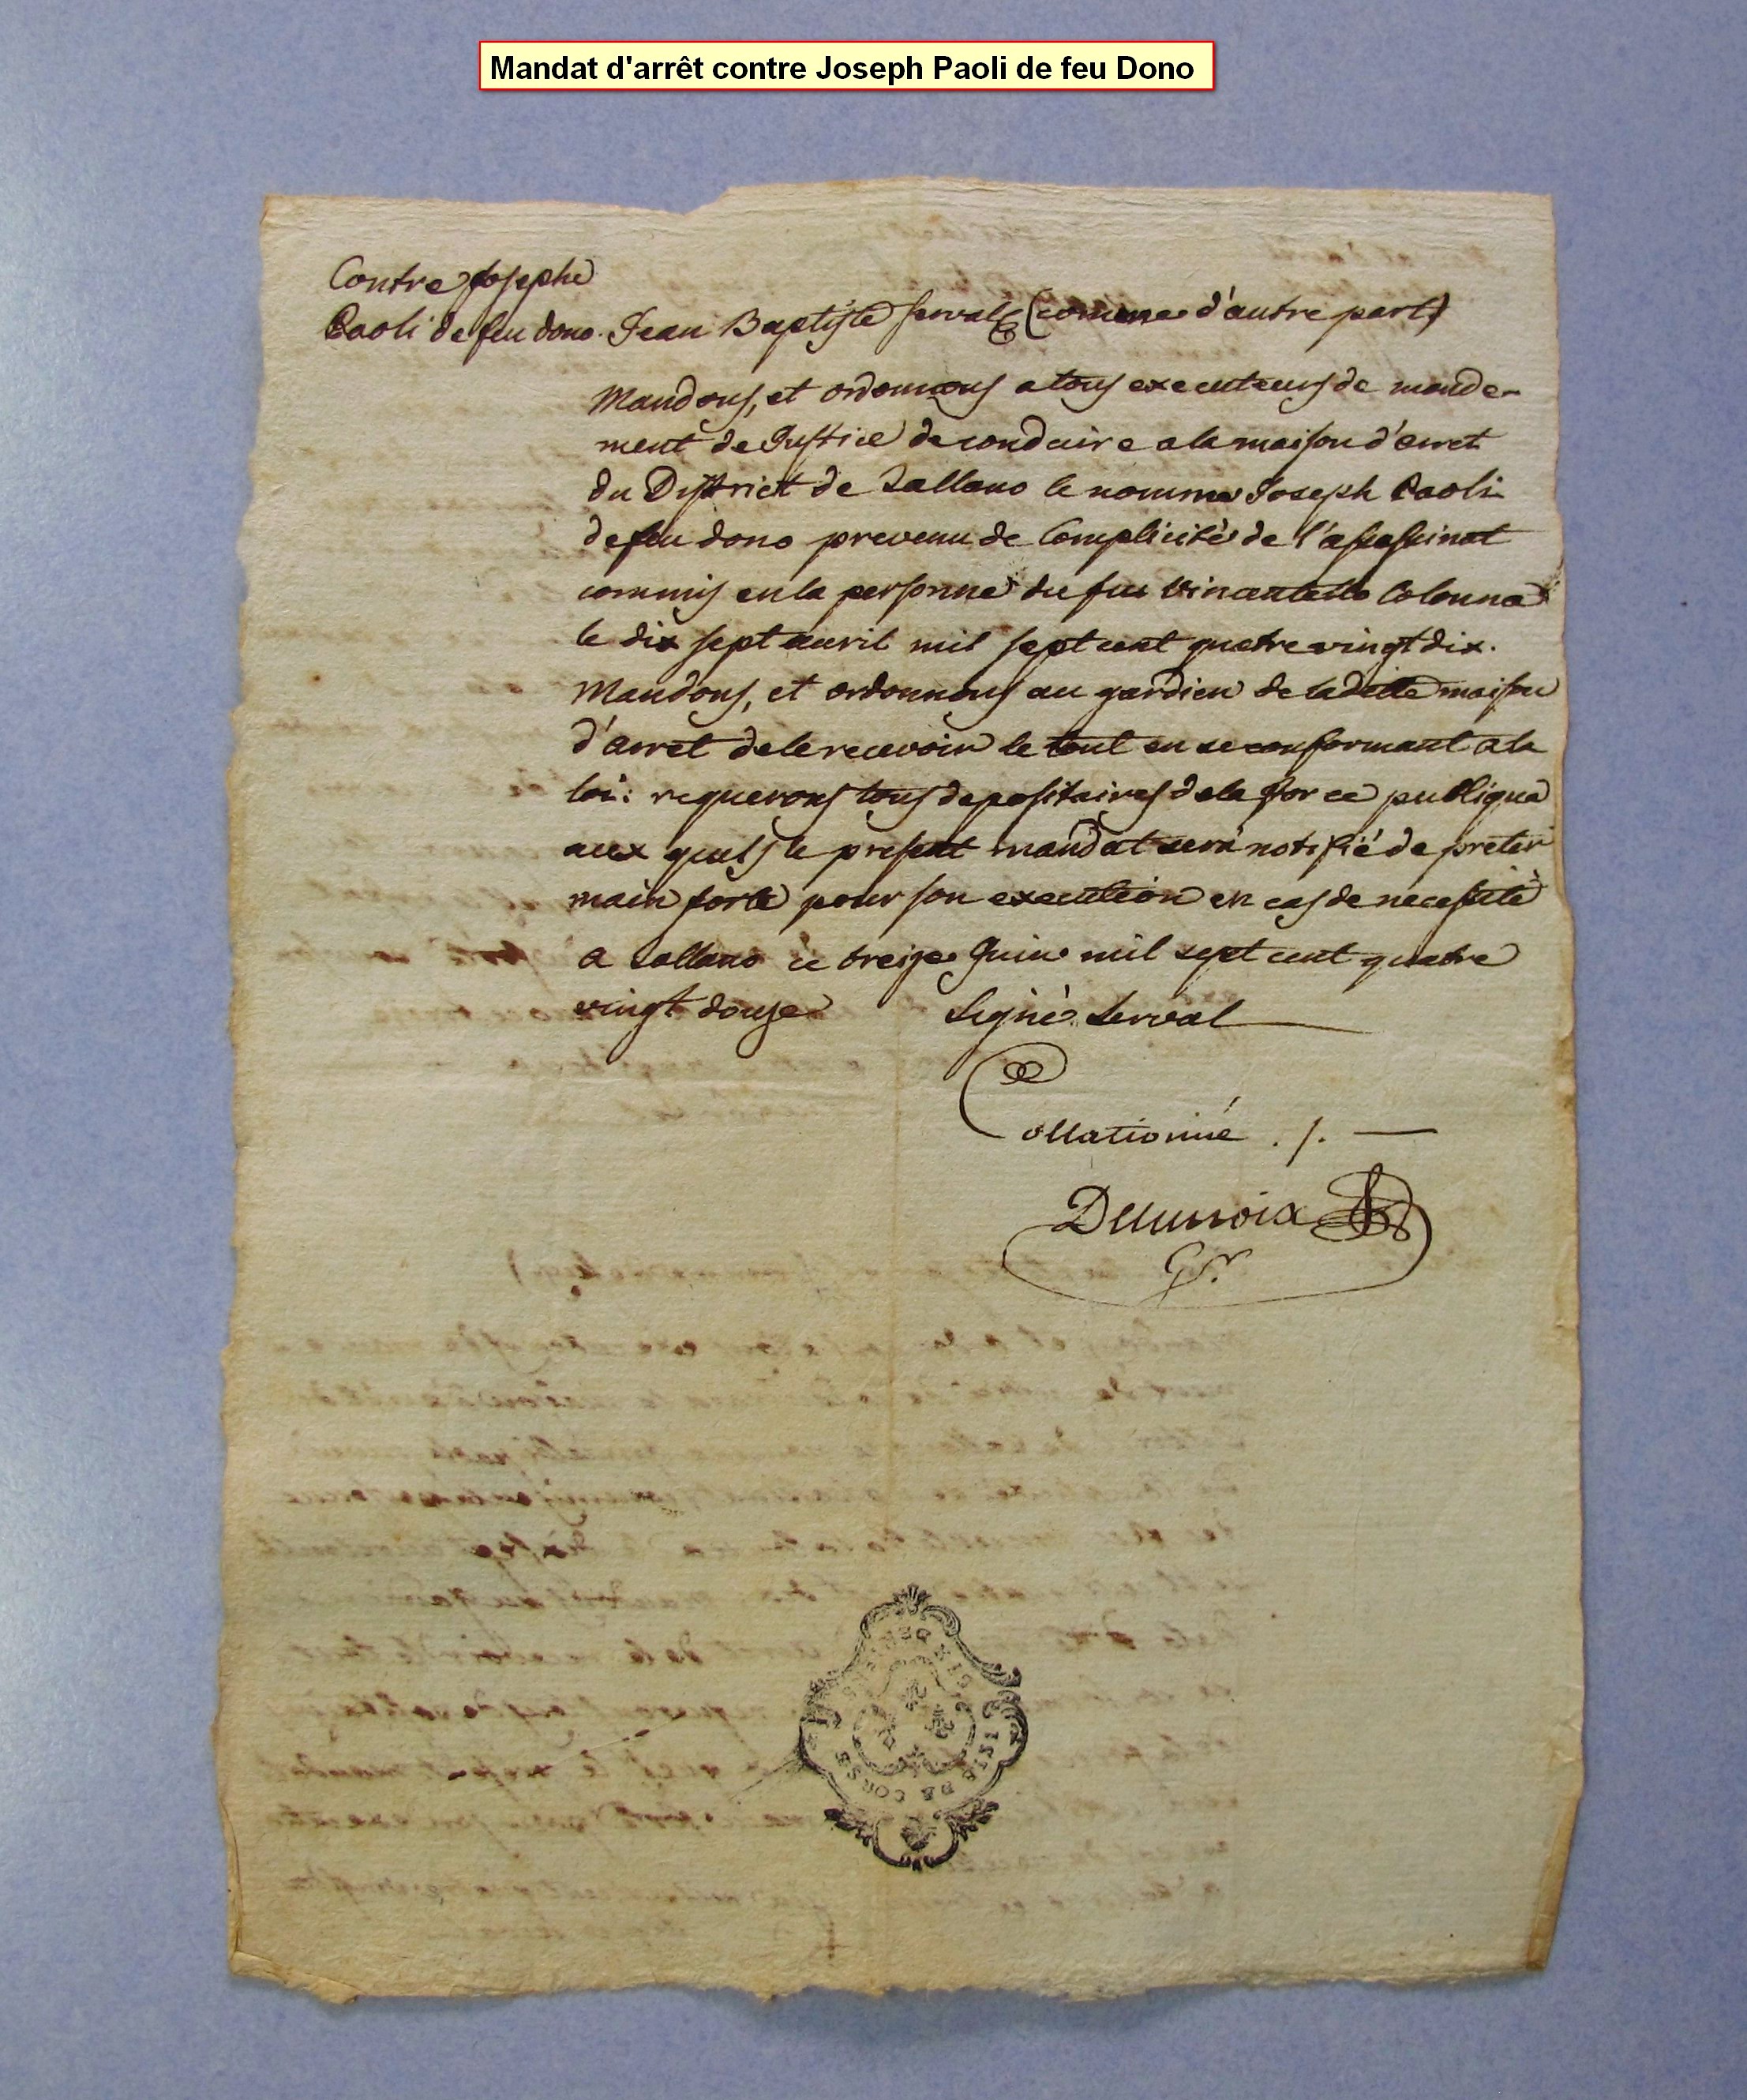 Mandat d'arrêt contre Joseph Paoli de feu Dono
Contre Josephe
Paoli de feu dono. Jean Baptiste Serval (comme d'autre part)
Mandons, et ordonnons a tous executeurs de mande-
ment de Justice de conduire a la maison d'arret
du District de Tallano le nomme Joseph Paoli
de feu dono prevenu de Complicité de l'assassinat
commis en la personne du feu Vincentello Colonna
le dix sept avril mil sept cent quatre vingt dix.
Mandons, et ordonnons au gardien de la ditte maison
d'arret de le recevoir le tout en se conformant a la
loi: requerons tous depositaires de la force publique
aux quels le present mandat sera notifié de preter
main forte pour son execution en cas de necessité
a Tallano ce treize Juin mil sept cent quatre
vingt douze Signé Serval
Collationné ./.
Gr.
DE CORSE